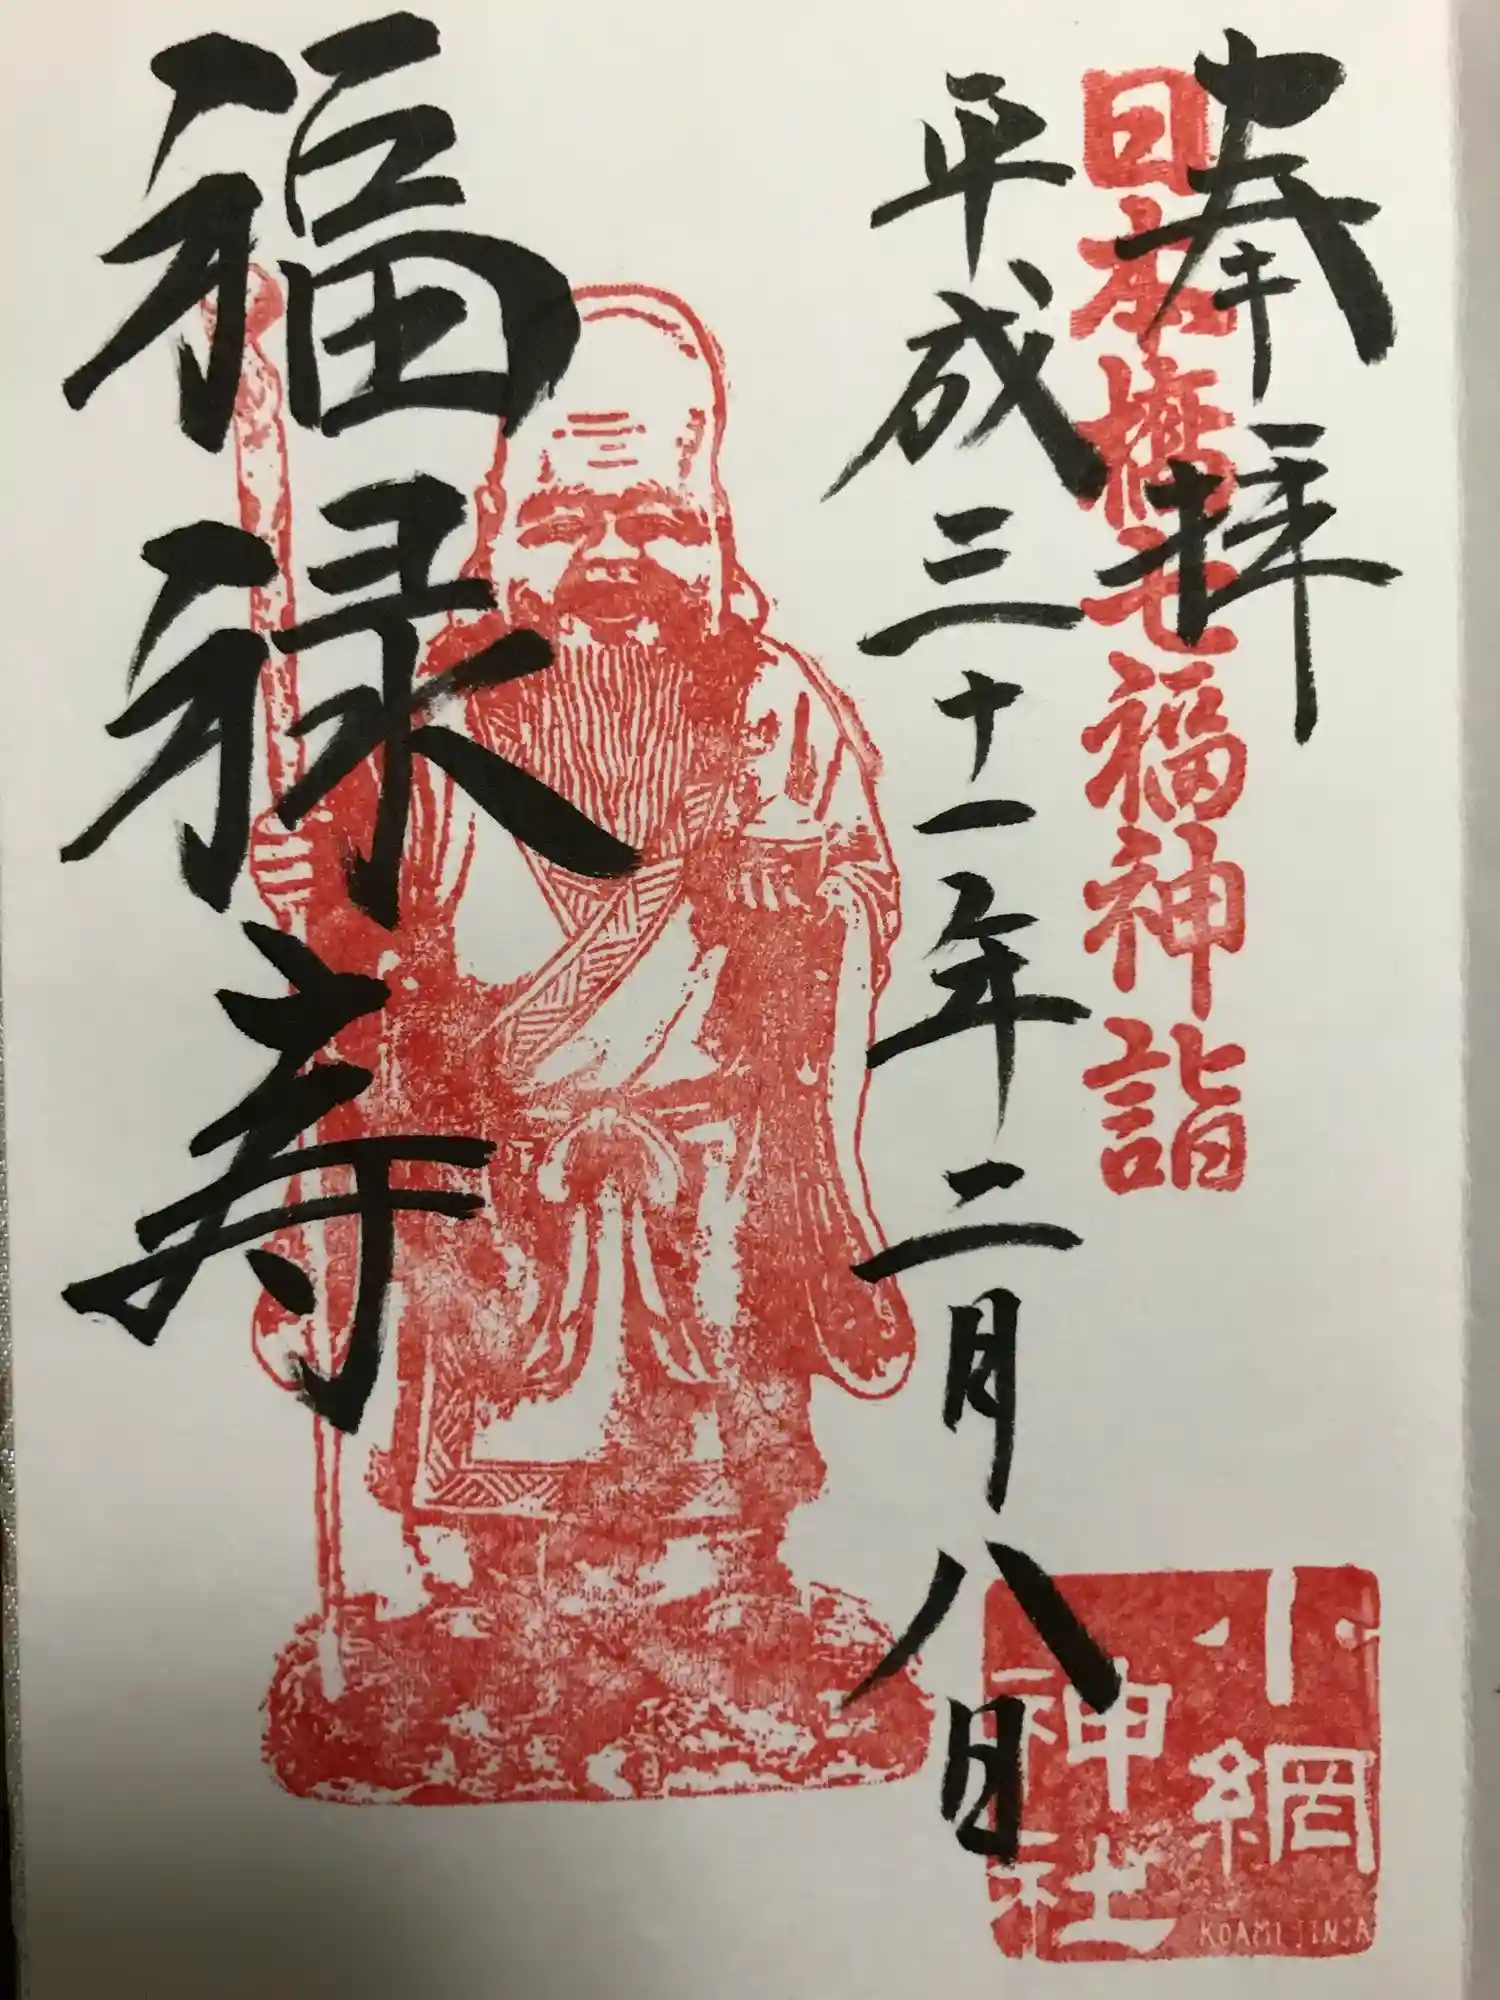 奉拝
日本橋七福神詣
平成三十一年二月八日
福禄寿
小網
神社
KOAMI JINJA